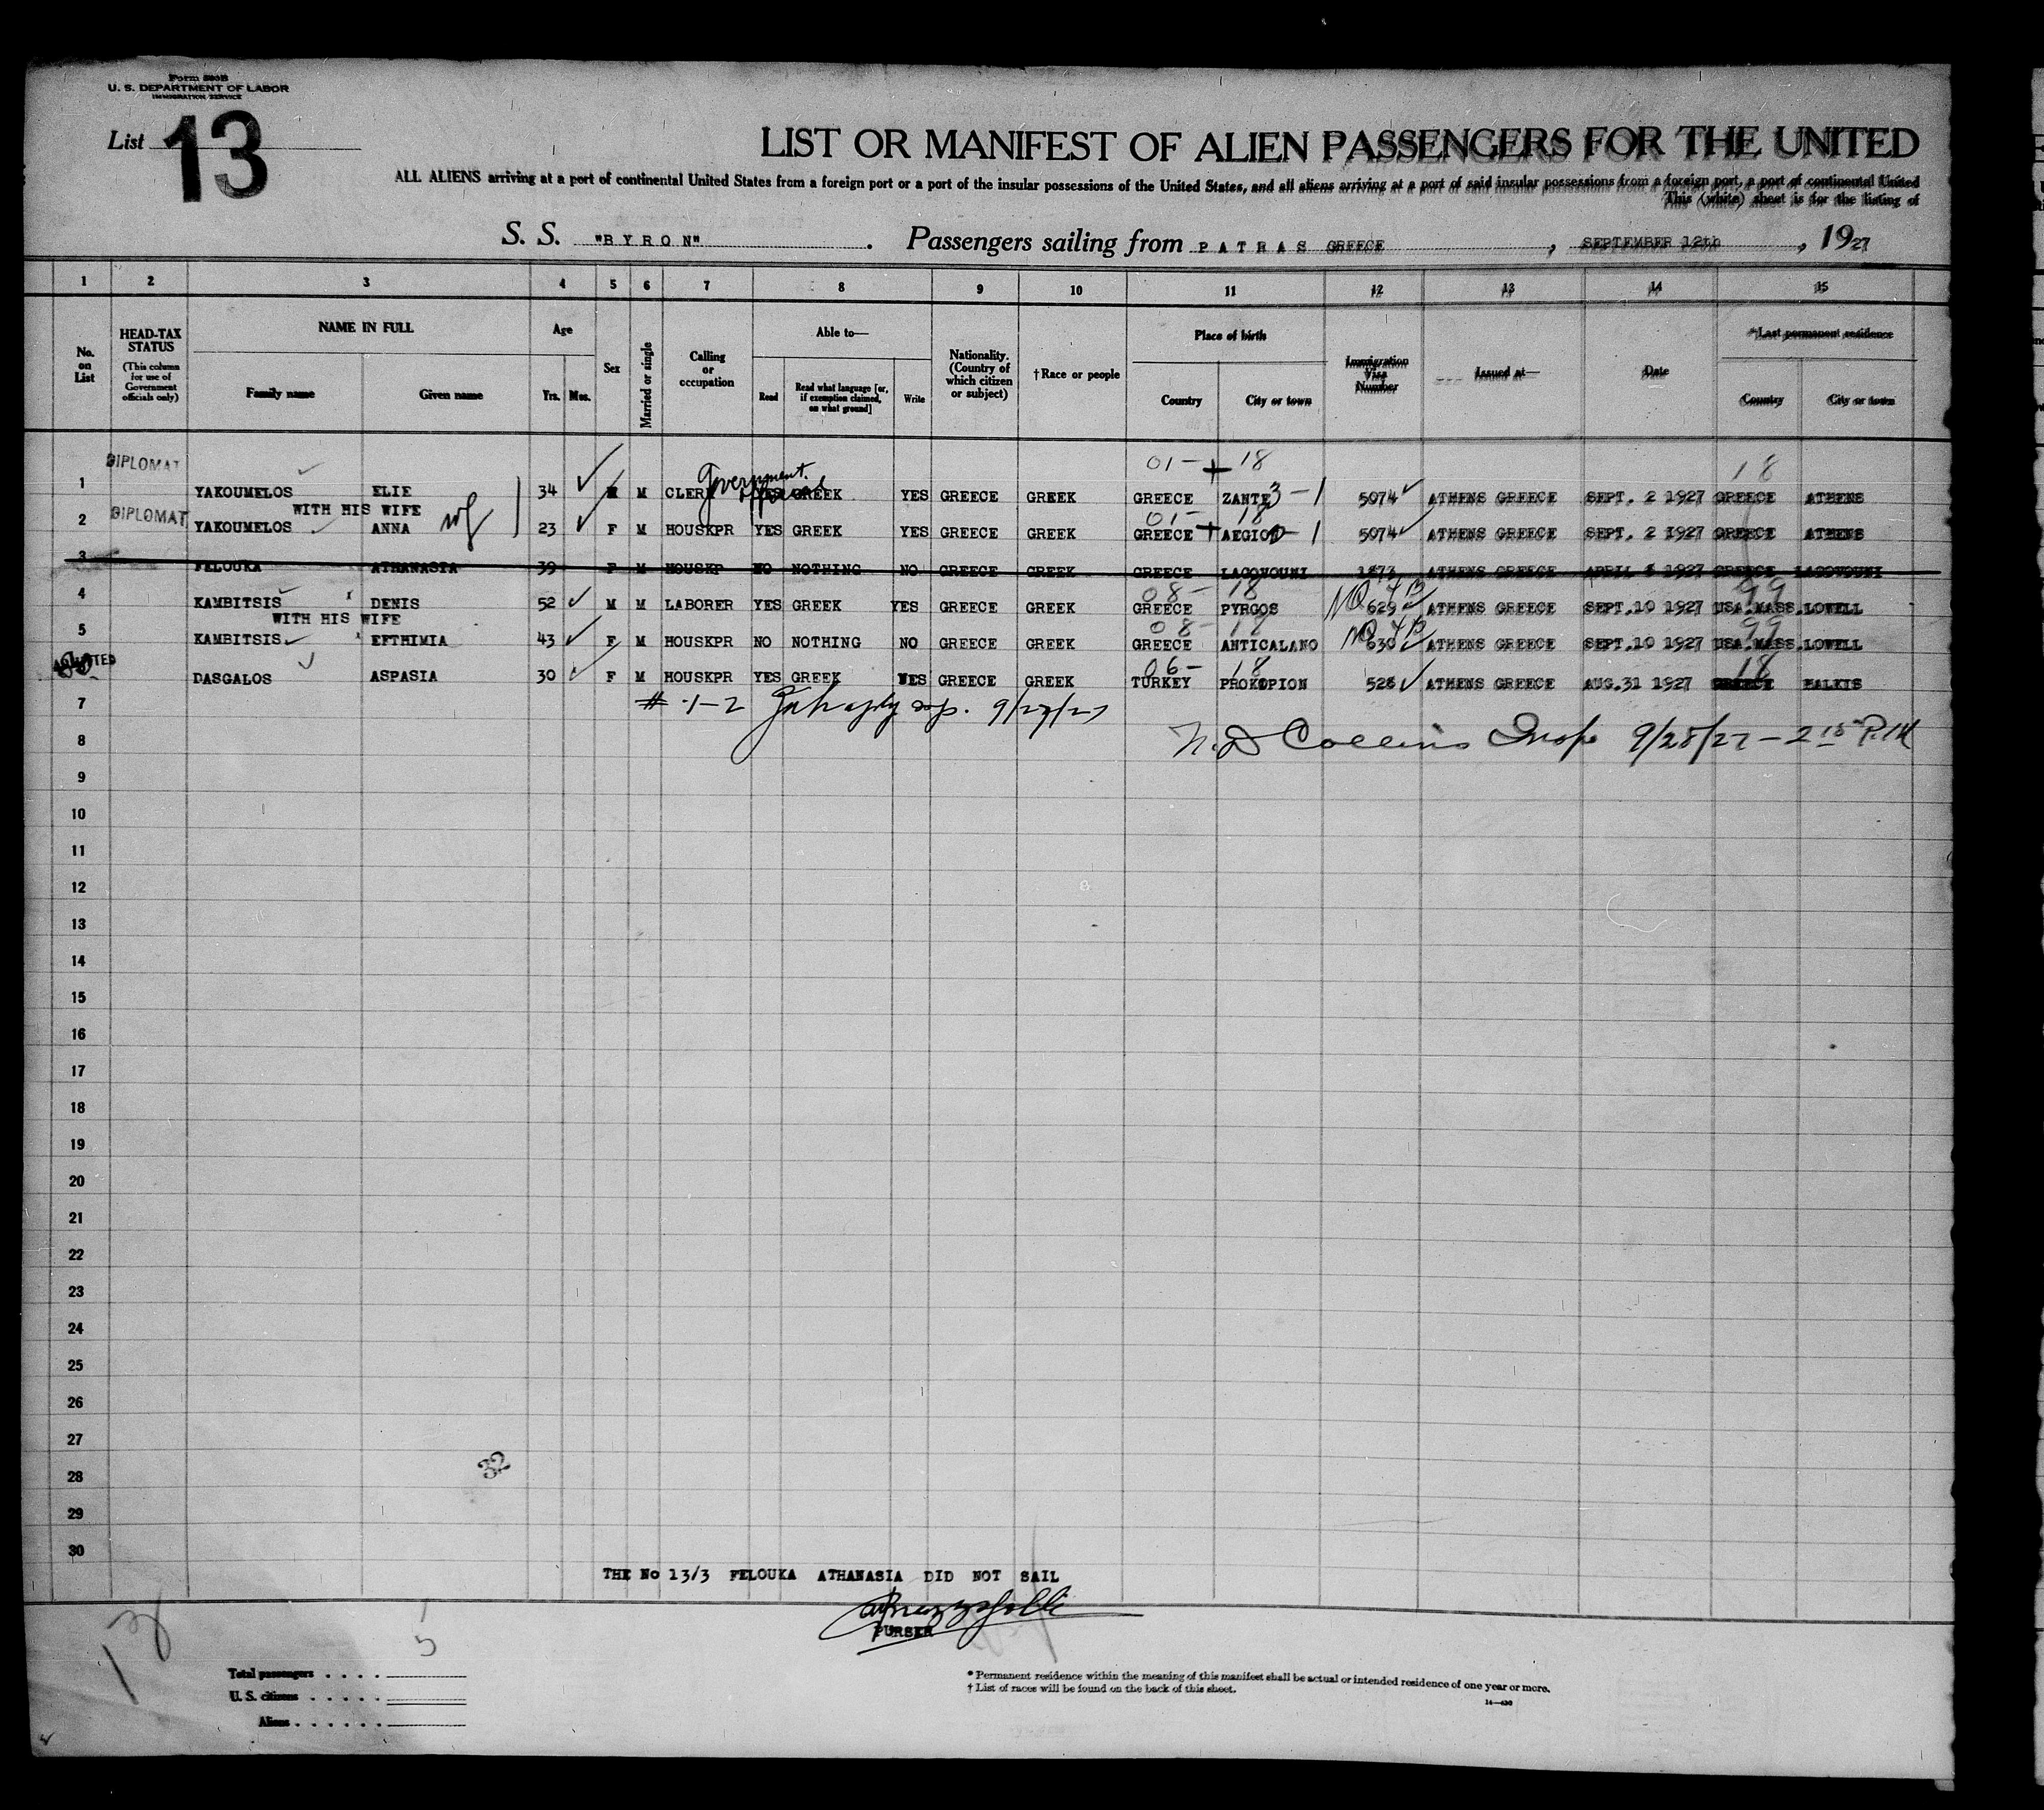 Form 500B
U. S. DEPARTMENT OF LABOR
IMMIGRATION SERVICE
List 13
LIST OR MANIFEST OF ALIEN PASSENGERS FOR THE UNITED
ALL ALIENS arriving at a port of continental United States from a foreign port or a port of the insular possessions of the United States, and all aliens arriving at a port of said insular possessions from a foreign port, a port of continental United
This (white) sheet is for the listing of
S. S. "BYRON". Passengers sailing from PATRAS GREECE, SEPTEMBER 12th, 1927
1 2 3 4 5 6 7 8 9 10 11 12 13 14 15
No. on List
HEAD-TAX STATUS (This column for use of Government officials only)
NAME IN FULL Family name Given name
Age Yrs. Mos.
Sex
Married or single
Calling or occupation
Able to— Read Read what language [or, if exemption claimed, on what ground] Write
Nationality. (Country of which citizen or subject)
†Race or people
Place of birth Country City or town
Immigration Visa Number
Issued at—
Date
*Last permanent residence Country City or town
DIPLOMAT Government 01- + 18 18
1 YAKOUMELOS ELIE 34 M M CLERK YES GREEK YES GREECE GREEK GREECE ZANTE 3-1 5074 ATHENS GREECE SEPT. 2 1927 GREECE ATHENS
WITH HIS WIFE
DIPLOMAT 01- 18
2 YAKOUMELOS ANNA 23 F M HOUSKPR YES GREEK YES GREECE GREEK GREECE + AEGION -1 5074 ATHENS GREECE SEPT. 2 1927 GREECE ATHENS
3 FELOUKA ATHANASIA 39 F M HOUSKP NO NOTHING NO GREECE GREEK GREECE LAGOVOUNI 1873 ATHENS GREECE APRIL 1927 GREECE LAGOVOUNI
08- 18 NQ 4B 99
4 KAMBITSIS DENIS 52 M M LABORER YES GREEK YES GREECE GREEK GREECE PYRGOS 629 ATHENS GREECE SEPT.10 1927 USA.MASS.LOWELL
WITH HIS WIFE
08- 18 NQ 4B 99
5 KAMBITSIS EFTHIMIA 43 F M HOUSKPR NO NOTHING NO GREECE GREEK GREECE ANTICALANO 630 ATHENS GREECE SEPT.10 1927 USA.MASS.LOWELL
ADMITTED 06- 18 18
DASGALOS ASPASIA 30 F M HOUSKPR YES GREEK YES GREECE GREEK TURKEY PROKOPION 528 ATHENS GREECE AUG.31 1927 GREECE
7 # 1-2 9/27/27
8 N. D Collins Insp 9/28/27 - 2 15 P.M
9
10
11
12
13
14
15
16
17
18
19
20
21
22
23
24
25
26
27
28 32
29
30
THE No 13/3 FELOUKA ATHANASIA DID NOT SAIL
PURSER
5
Total passengers
U. S. citizens
Aliens
* Permanent residence within the meaning of this manifest shall be actual or intended residence of one year or more.
† List of races will be found on the back of this sheet.